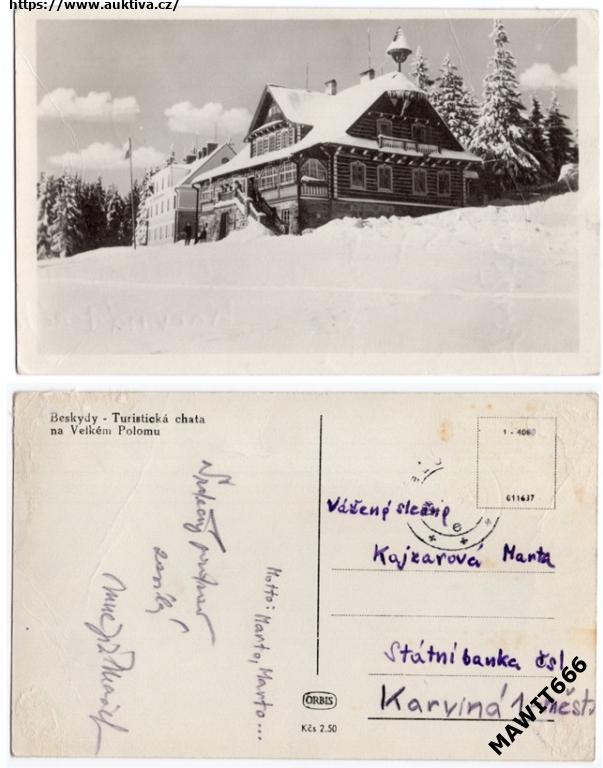 https://www.auktiva.cz/
Beskydy - Turistická chata
na Velkém Polomu
1 - 4060
G11637
Vážená slečna
Kajzarová Marta
Státní banka čsl
Karviná 1
Srdečný pozdrav
zasílá
Motto: Marto, Marto...
ORBIS
Kčs 2.50
MAWIT666